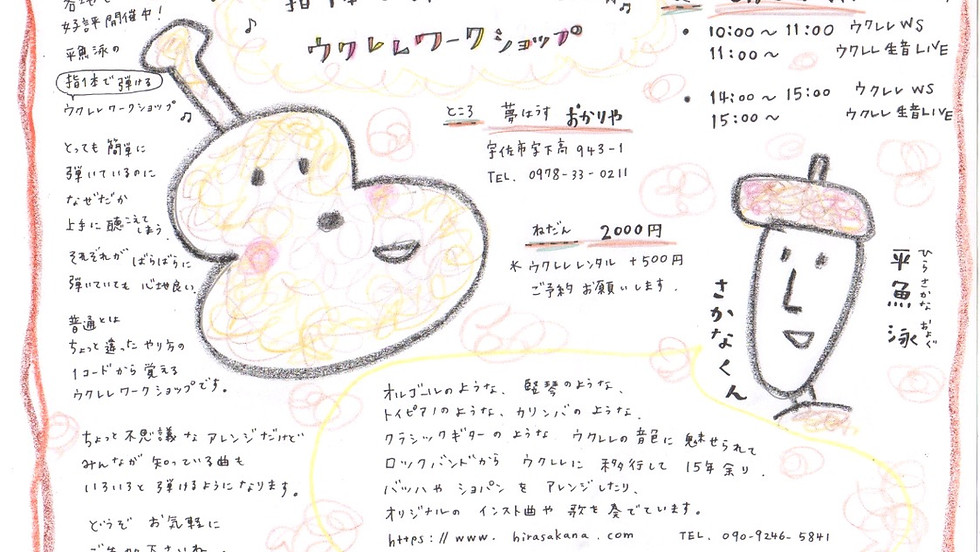 好評開催中!
平魚泳の
指1本で弾ける
ウクレレワークショップ
とっても簡単に
弾いているのに
なぜだか
上手に聴こえて
しまう。
それぞれが ばらばらに
弾いていても 心地良い。
普通とは
ちょっと違った やり方の
1コードから 覚える
ウクレレワークショップです。
ちょっと不思議な アレンジだけど
みんなが 知っている曲も
いろいろと 弾けるようになります。
どうぞ お気軽に
ウクレレワークショップ
ところ 夢はうす おかりや
宇佐市字下高943-1
TEL. 0978-33-0211
ねだん 2000円
*ウクレレレンタル +500円
ご予約お願いします.
• 10:00〜11:00 ウクレレWS
11:00〜 ウクレレ生音LIVE
• 14:00〜15:00 ウクレレWS
15:00〜 ウクレレ生音LIVE
ひらさかな およぐ
平魚泳
さかなくん
オルゴールのような、竪琴のような、
トイピアノのような、カリンバのような、
クラシックギターのような ウクレレの音色に魅せられて
ロックバンドから ウクレレに 移行して 15年余り.
バッハや ショパンを アレンジしたり、
オリジナルの インスト曲や 歌を奏でています。
https://www.hirasakana.com TEL. 090-9246-5841